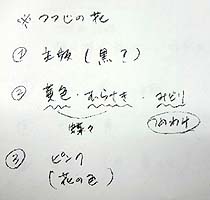 ※つつじの花
① 主版(黒?)
② 黄色・むらさき・みどり
蝶々
つかわけ
③ ピンク
(花の色)